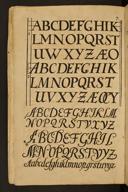 ABCDEFGHIK
LMNOPQRST
UVWXYZÆO
ABCDEFGHIK
LMNOPQRST
UVXYZÆŒY
ABCDEFGHIKLM
NOPQRSTVXYZ
ABCDEFGHIL
MNOPQRSTVYZ
Aabcdefghiklmnopqrstuvxyz